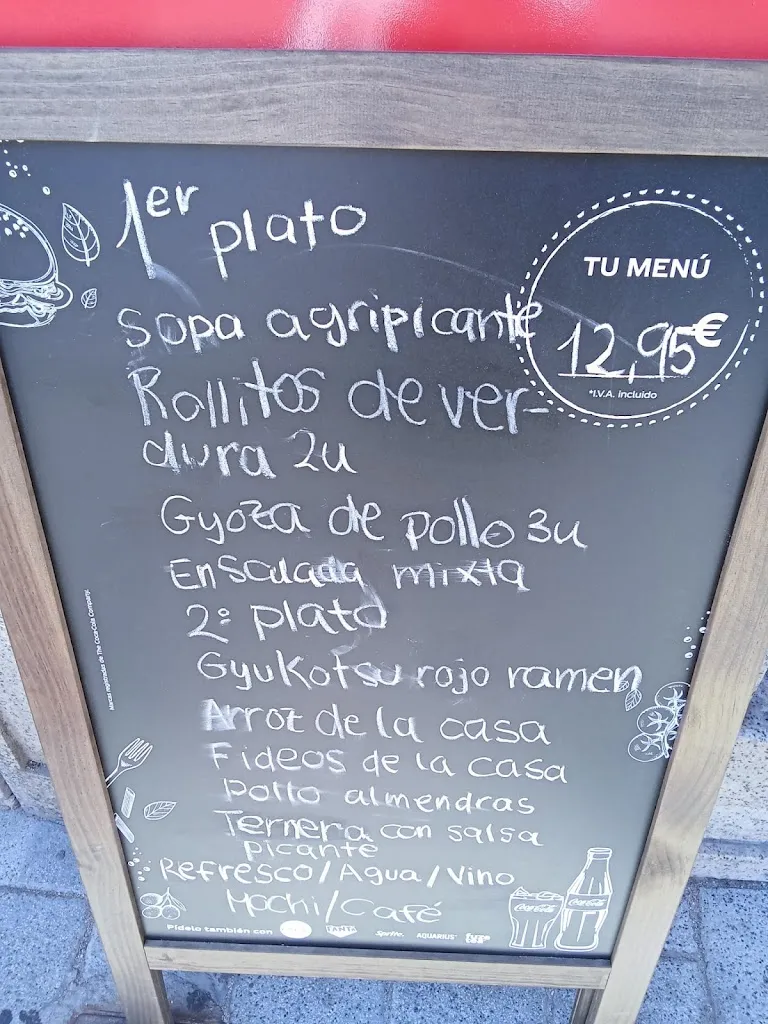 1er plato
TU MENÚ
12,95€
*I.V.A. incluido
Sopa agripicante
Rollitos de ver-
dura 2u
Gyoza de pollo 3u
Ensalada mixta
2º plato
Gyukotsu rojo ramen
Arroz de la casa
Fideos de la casa
pollo almendras
Ternera con salsa
picante
Refresco/Agua/Vino
Mochi/Café
Pídelo también con
FANTA
Sprite
AQUARIUS
fuze tea
Coca-Cola
Coca-Cola
Marcas registradas de The Coca-Cola Company.